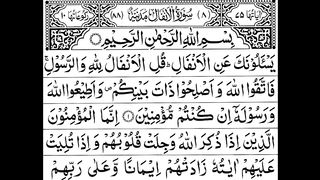 اٰیاتها ٧٥ (٨) سُوْرَةُ الْاَنْفَالِ مَدَنِیَّةٌ (٨٨) رکوعاتها ١٠
بِسْمِ اللّٰهِ الرَّحْمٰنِ الرَّحِیْمِ
یَسْـَٔلُوْنَكَ عَنِ الْاَنْفَالِ ؕ قُلِ الْاَنْفَالُ لِلّٰهِ وَ الرَّسُوْلِ ۚ
فَاتَّقُوا اللّٰهَ وَ اَصْلِحُوْا ذَاتَ بَیْنِكُمْ ۪ وَ اَطِیْعُوا اللّٰهَ
وَ رَسُوْلَهٗۤ اِنْ كُنْتُمْ مُّؤْمِنِیْنَ ﴿١﴾ اِنَّمَا الْمُؤْمِنُوْنَ
الَّذِیْنَ اِذَا ذُكِرَ اللّٰهُ وَ جِلَتْ قُلُوْبُهُمْ وَ اِذَا تُلِیَتْ
عَلَیْهِمْ اٰیٰتُهٗ زَادَتْهُمْ اِیْمَانًا وَّ عَلٰی رَبِّهِمْ